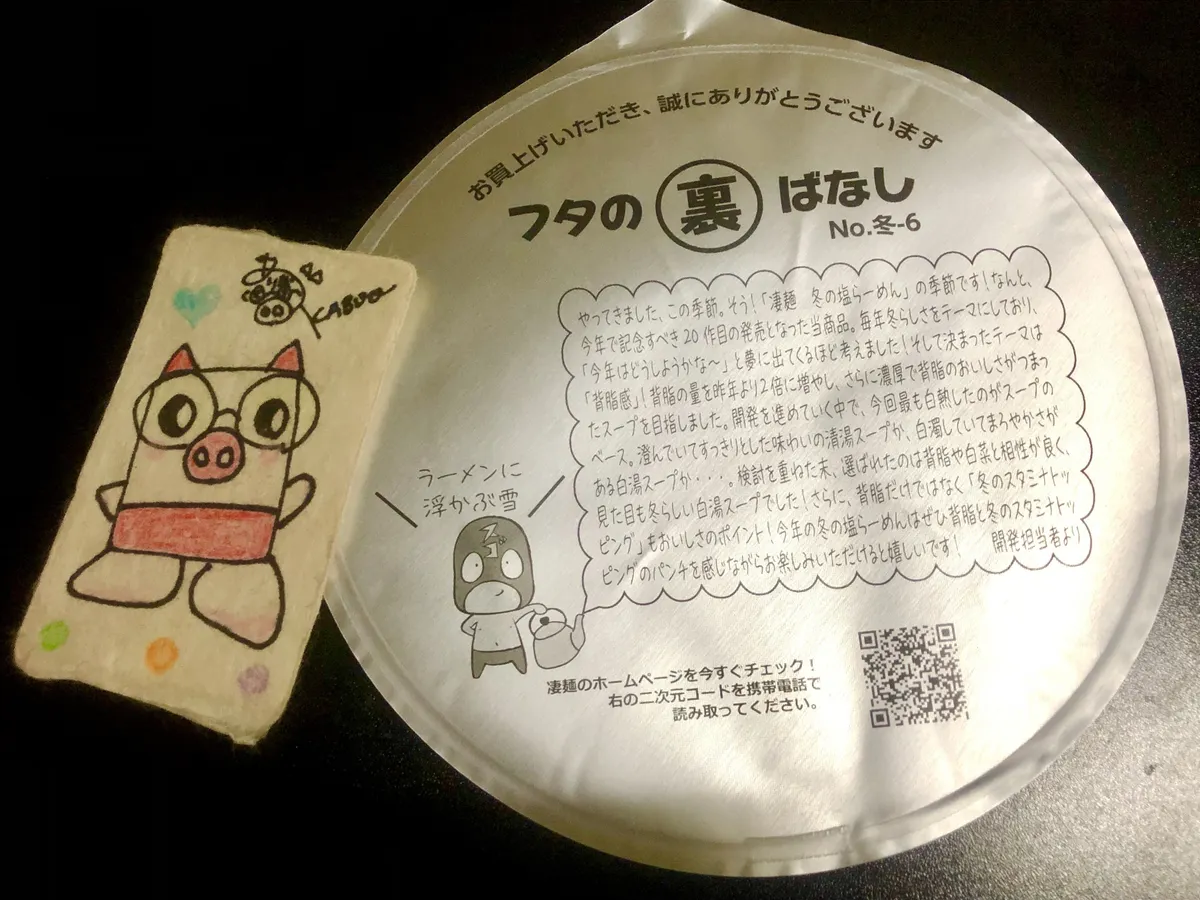 お買上げいただき、誠にありがとうございます
フタの裏ばなし
No.冬-6
やってきました、この季節。そう!「凄麺 冬の塩らーめん」の季節です!なんと、
今年で記念すべき20作目の発売となった当商品。毎年冬らしさをテーマにしており、
「今年はどうしようかな〜」と夢に出てくるほど考えました!そして決まったテーマは
「背脂感」!背脂の量を昨年より2倍に増やし、さらに濃厚で背脂のおいしさがつまっ
たスープを目指しました。開発を進めていく中で、今回最も白熱したのがスープの
ベース。澄んでいてすっきりとした味わいの清湯スープか、白濁していてまろやかさが
ある白湯スープか・・・。検討を重ねた末、選ばれたのは背脂や白菜と相性が良く、
見た目も冬らしい白湯スープでした!さらに、背脂だけではなく「冬のスタミナトッ
ピング」もおいしさのポイント!今年の冬の塩らーめんはぜひ背脂と冬のスタミナトッ
ピングのパンチを感じながらお楽しみいただけると嬉しいです! 開発担当者より
ラーメンに
浮かぶ雪
スゴ
凄麺のホームページを今すぐチェック!
右の二次元コードを携帯電話で
読み取ってください。